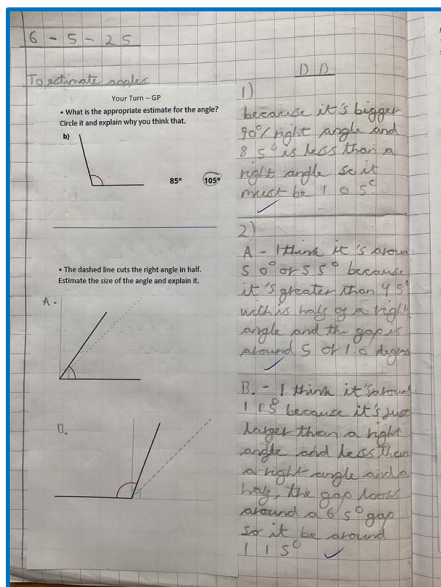 6 - 5 - 25
To estimate angles
Your Turn – GP
• What is the appropriate estimate for the angle?
Circle it and explain why you think that.
b)
85° 105°
• The dashed line cuts the right angle in half.
Estimate the size of the angle and explain it.
A.
B.
D D
1)
because it's bigger
90°/right angle and
85° is less than a
right angle so it
must be 105°
2)
A - I think it's aroun
50° or 55° because
it's greater than 45°
wich is half of a right
angle and the gap is
around 5 or 10 degres
B. - I think it's around
115° because it's just
larger than a right
angle and less than
a right angle and a
half, the gap looks
around a 65° gap
so it be around
115°